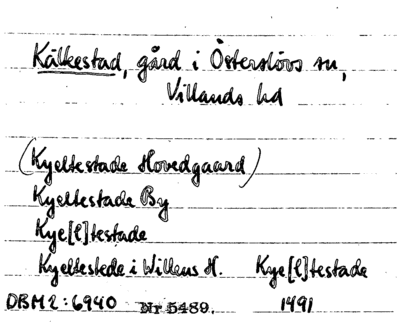 Källestad, gård i Österslövs sn,
Villands hd
(Kyeltestade Hovedgaard)
Kyeltestade By
Kye[l]testade
Kyeltestede i Willens H. Kye[l]testade
DBM2:6940 Nr 5489. 1491